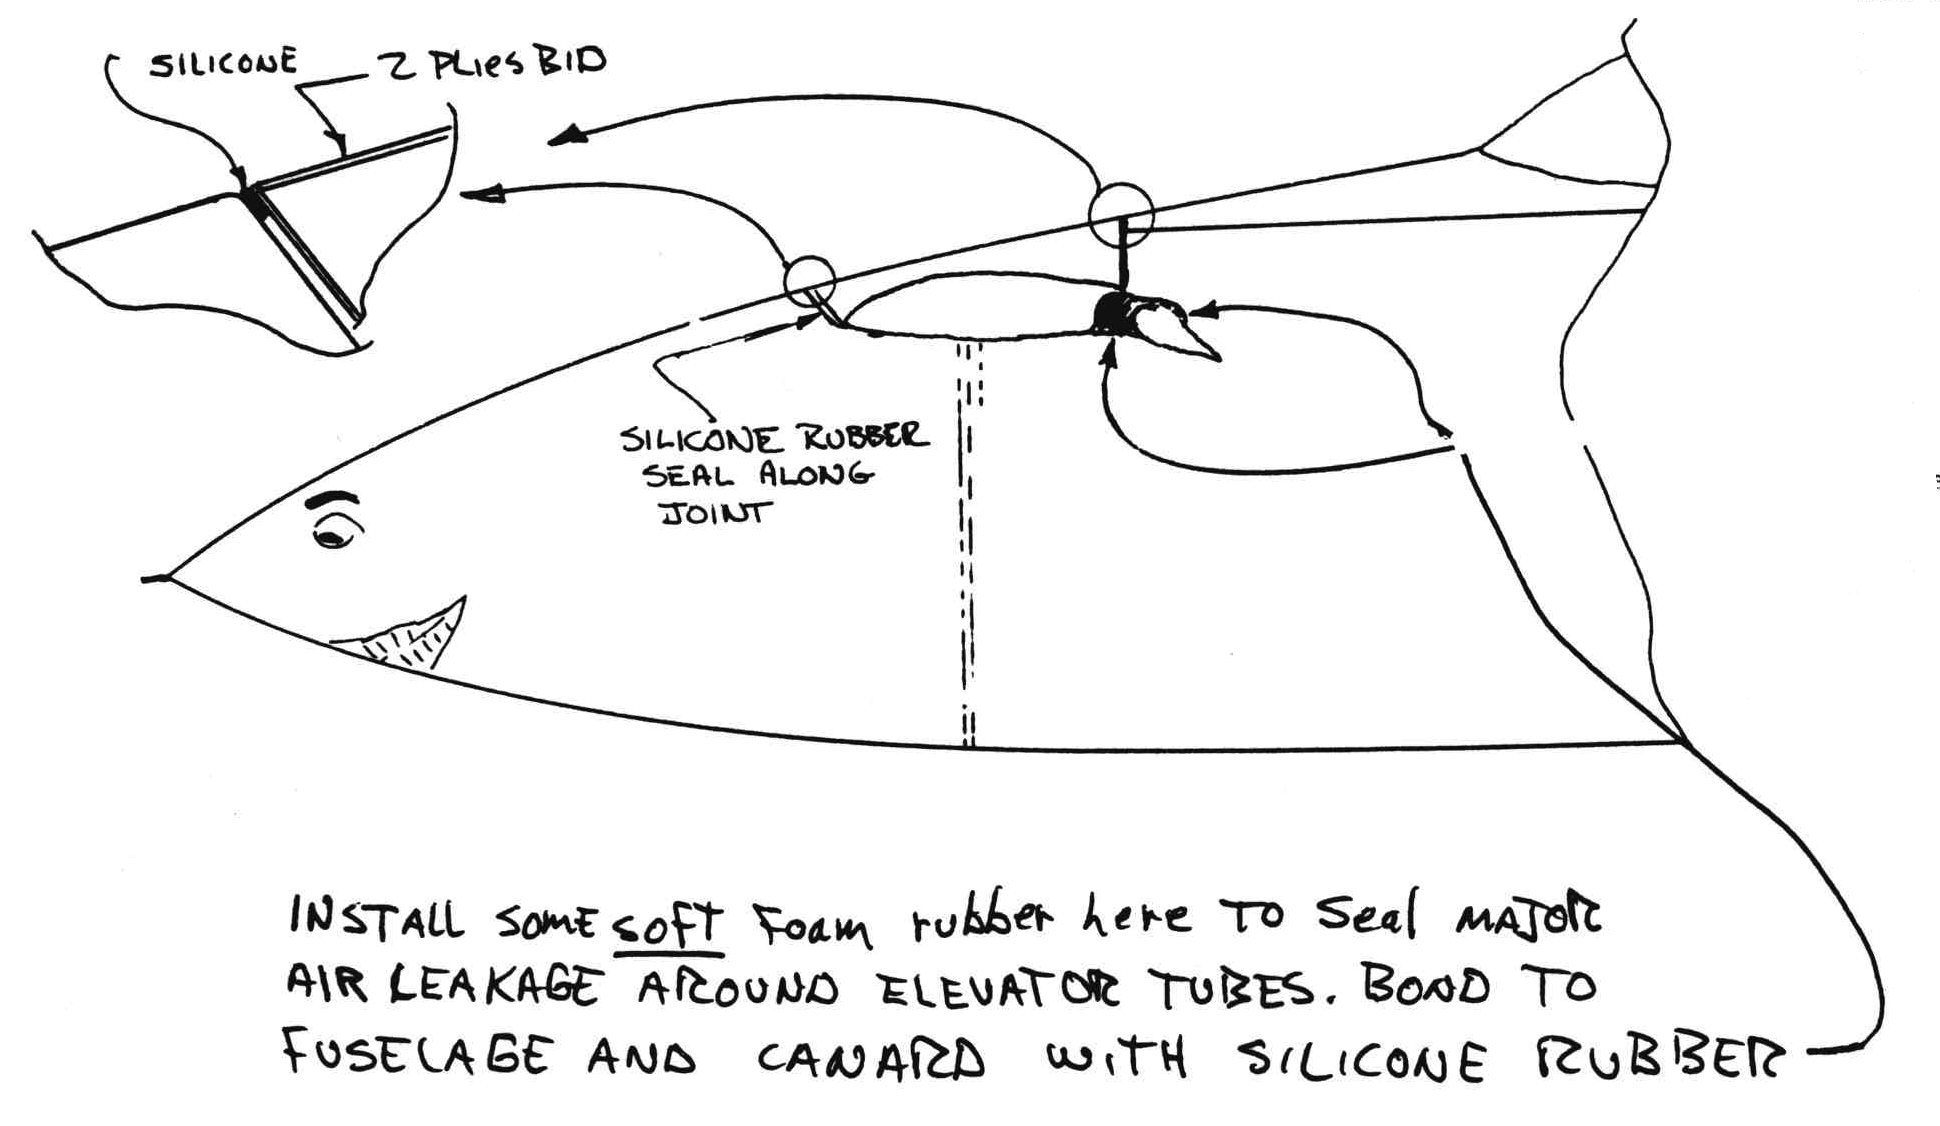 SILICONE
2 PLIES BID
SILICONE RUBBER
SEAL ALONG
JOINT
INSTALL SOME SOFT FOAM rubber here TO Seal MAJOR
AIR LEAKAGE AROUND ELEVATOR TUBES. BOND TO
FUSELAGE AND CANARD WITH SILICONE RUBBER